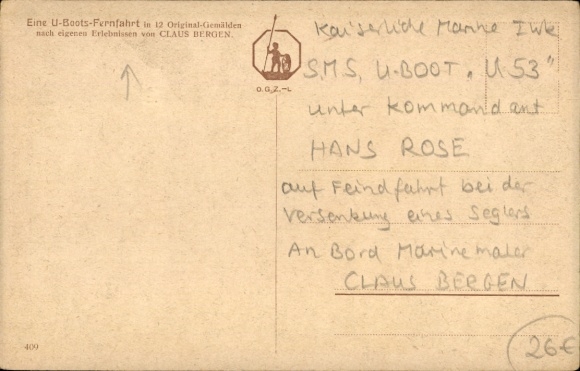 Eine U-Boots-Fernfahrt in 12 Original-Gemälden
nach eigenen Erlebnissen von CLAUS BERGEN.
O.G.Z.-L
Kaiserliche Marine
S.M.S. U-BOOT „U 53"
unter Kommandant
HANS ROSE
auf Feindfahrt bei der
Versenkung eines Seglers
An Bord Marinemaler
CLAUS BERGEN
409
26€